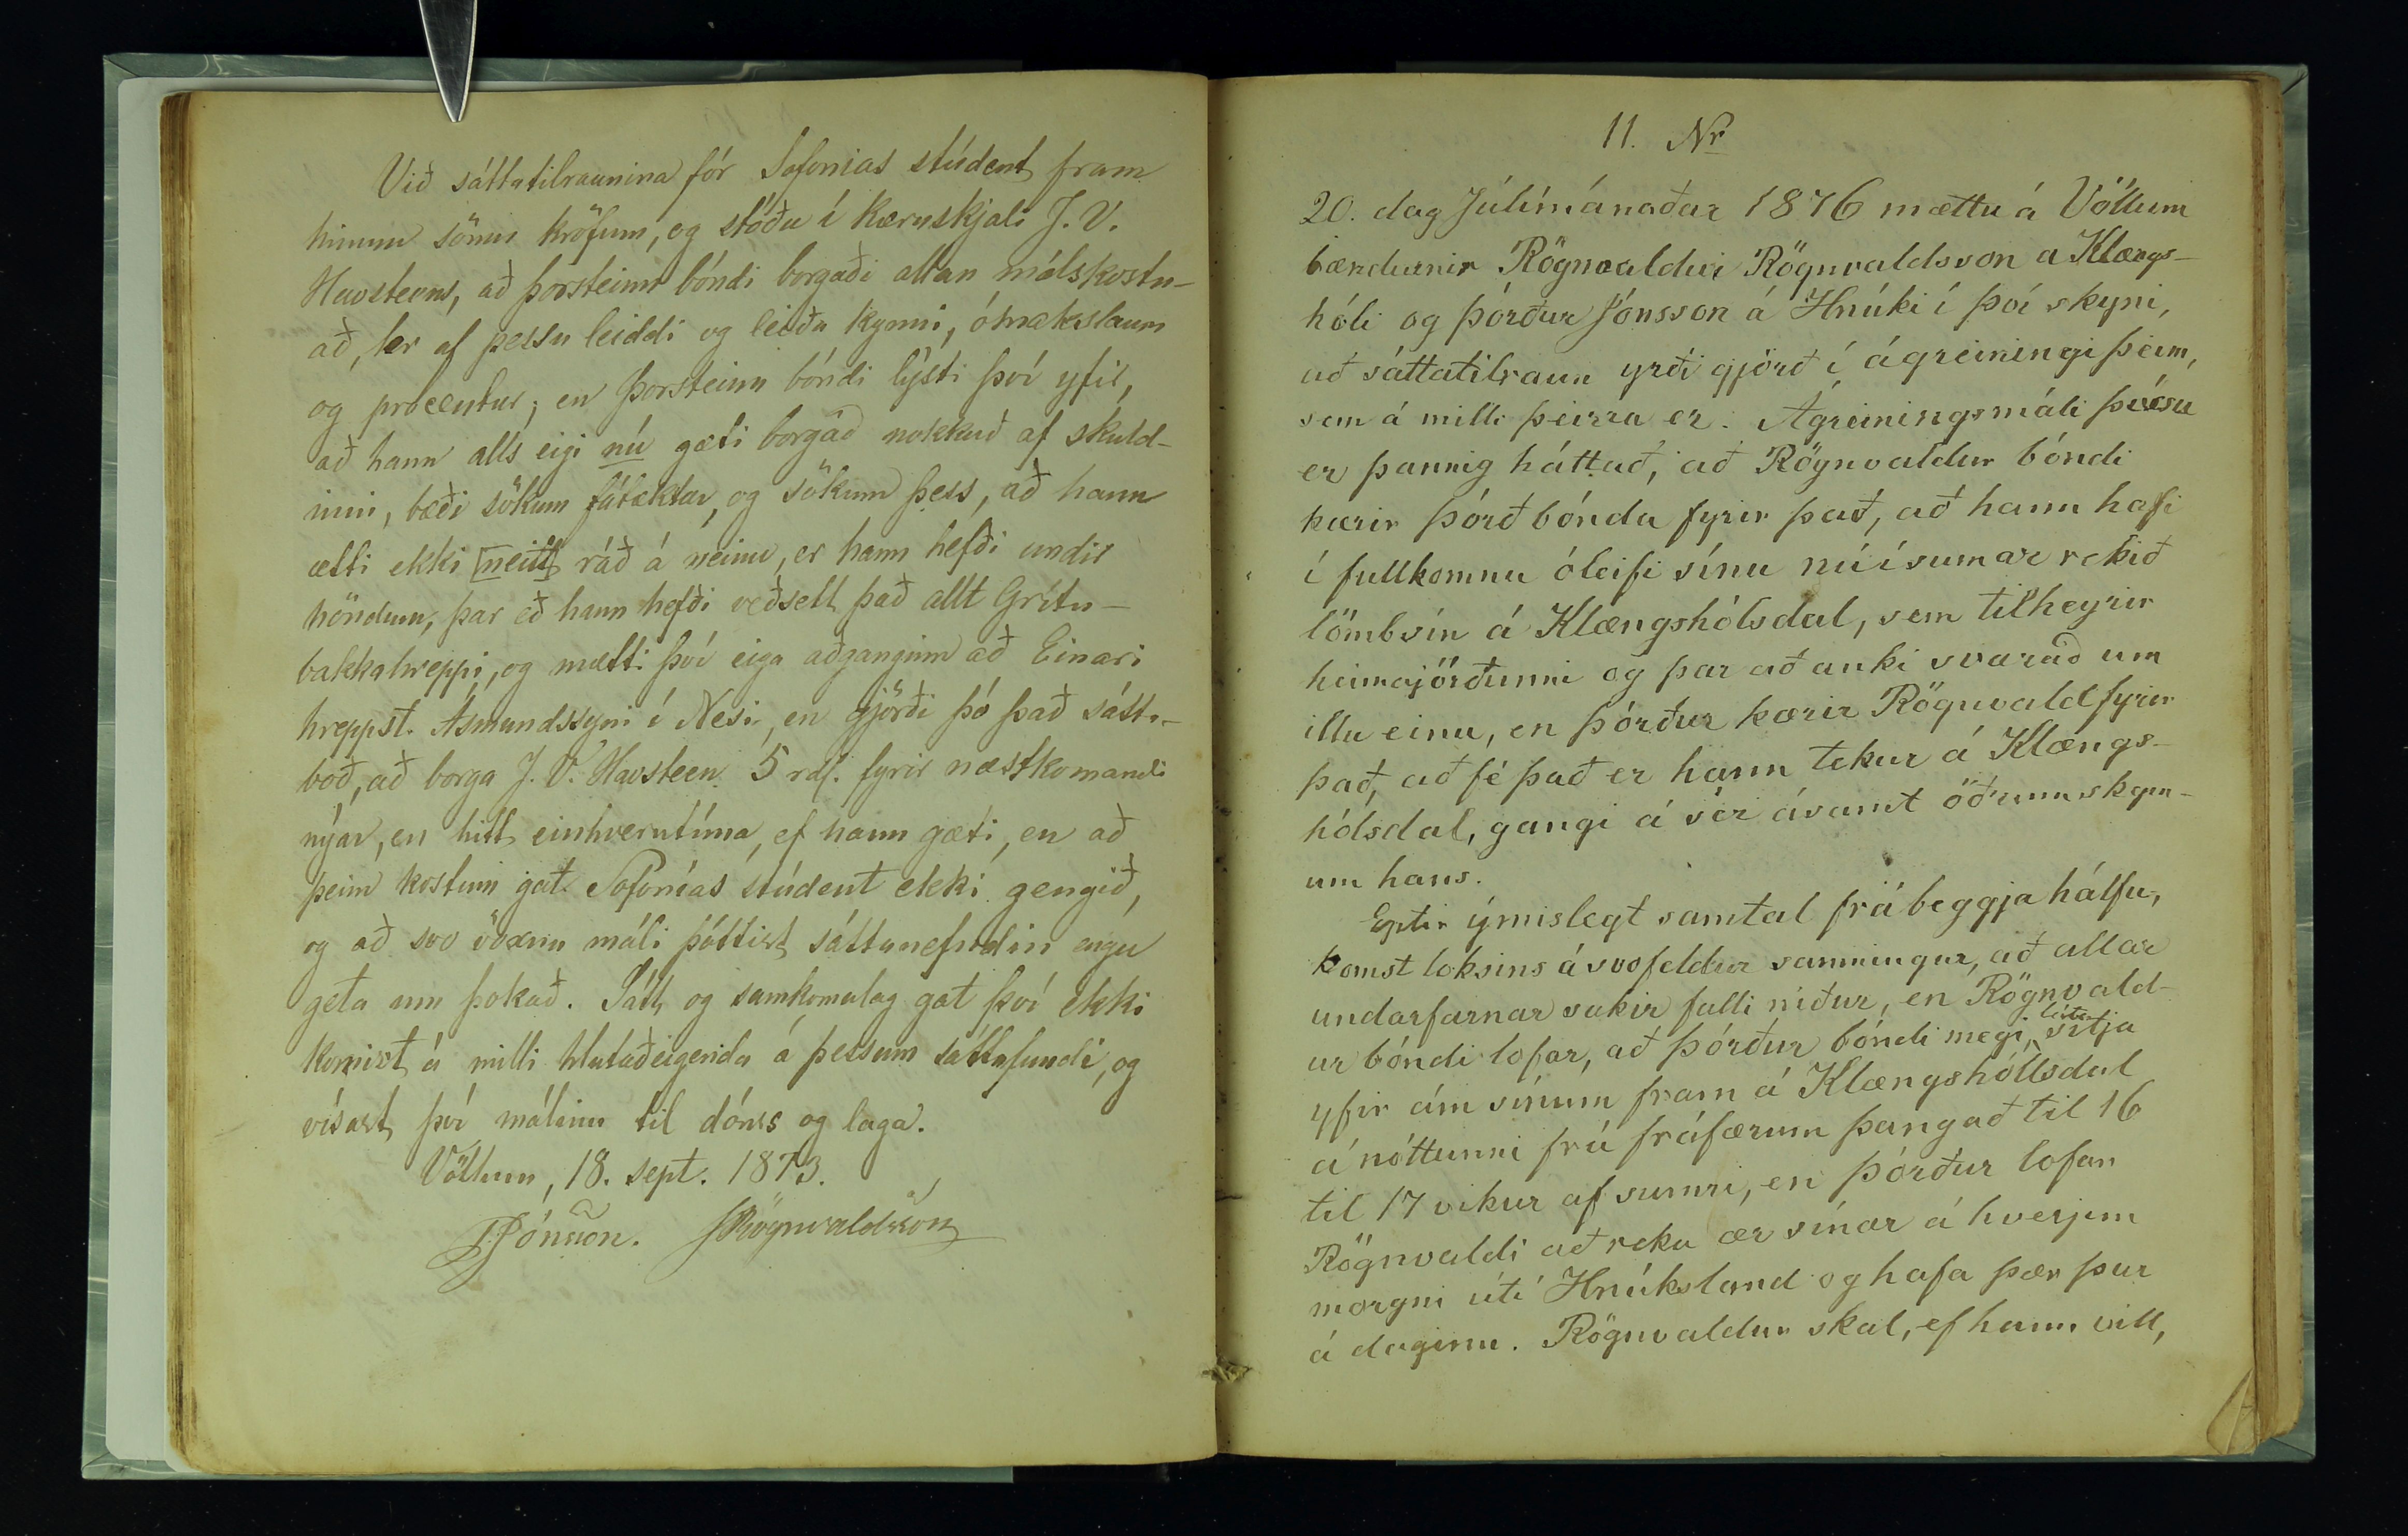 Við sáttatilraunina fór Sofonias stúdent fram
hinum sömu kröfum, og stóðu í kæruskjali J. V.
Havsteens, að Þorsteinn bóndi borgaði allan málskostn-
að, er af þessu leiddi og leiða kynni, ómakslaun
og procentur; en Þorsteinn bóndi lýsti því yfir,
að hann alls eigi nú gæti borgað nokkuð af skuld-
inni, bæði sökum fátæktar, og sökum þess, að hann
ætti ekki [neitt] ráð á neinu, er hann hefði undir
höndum, þar eð hann hefði veðsett það allt Grítu-
bakkahreppi, og mætti því eiga aðganginn að Einari
hreppst. Ásmundssyni í Nesi, en gjörði þó það sátta-
boð, að borga J. V. Havsteen 5 rdl. fyrir næstkomandi
nýár, en hitt einhverntíma, ef hann gæti, en að
þeim kostum gat Sofonías stúdent ekki gengið,
og að svo vöxnu máli þóttist sáttanefndin eigi
geta um þokað. Sátt og samkomulag gat því ekki
komist á milli hlutaðeigenda á þessum sáttafundi, og
vísast því málinu til dóms og laga.
Völlum, 18. sept. 1873.
Jónsson. JRögnvaldsson
11. Nr
20. dag Júlímánaðar 1876 mættu á Völlum
bændurnir Rögnvaldur Rögnvaldsson a Klængs-
hóli og Þórður Jónsson á Hnúki í því skyni,
að sáttatilraun yrði gjörð í ágreiningi þeim,
sem á milli þeirra er. Ágreiningsmáli þessu
er þannig háttað, að Rögnvaldur bóndi
kærir Þórð bónda fyrir það, að hann hafi
í fullkomnu óleifi sínu nú í sumar rekið
lömb sín á Klængshólsdal, sem tilheyrir
heimajörðunni og þar að auki svarað um
illu einu, en Þórður kærir Rögnvald fyrir
það, að fé það er hann tekur á Klængs-
hólsdal, gangi á sér ásamt öðrum skepn-
um hans.
Eptir ýmislegt samtal frá beggja hálfu,
komst loksins á svofeldur samningur, að allar
undarfarnar sakir falli niður, en Rögnvald-
ur bóndi lofar, að Þórður bóndi megi láta sitja
yfir ám sínum fram á Klængshóllsdal
á nóttunni frá fráfærum þangað til 16
til 17 vikur af sumri, en Þórður lofar
Rögnvaldi að reka ær sínar á hverjum
morgni útí Hnúksland og hafa þær þar
á daginn. Rögnvaldur skal, ef hann vill,